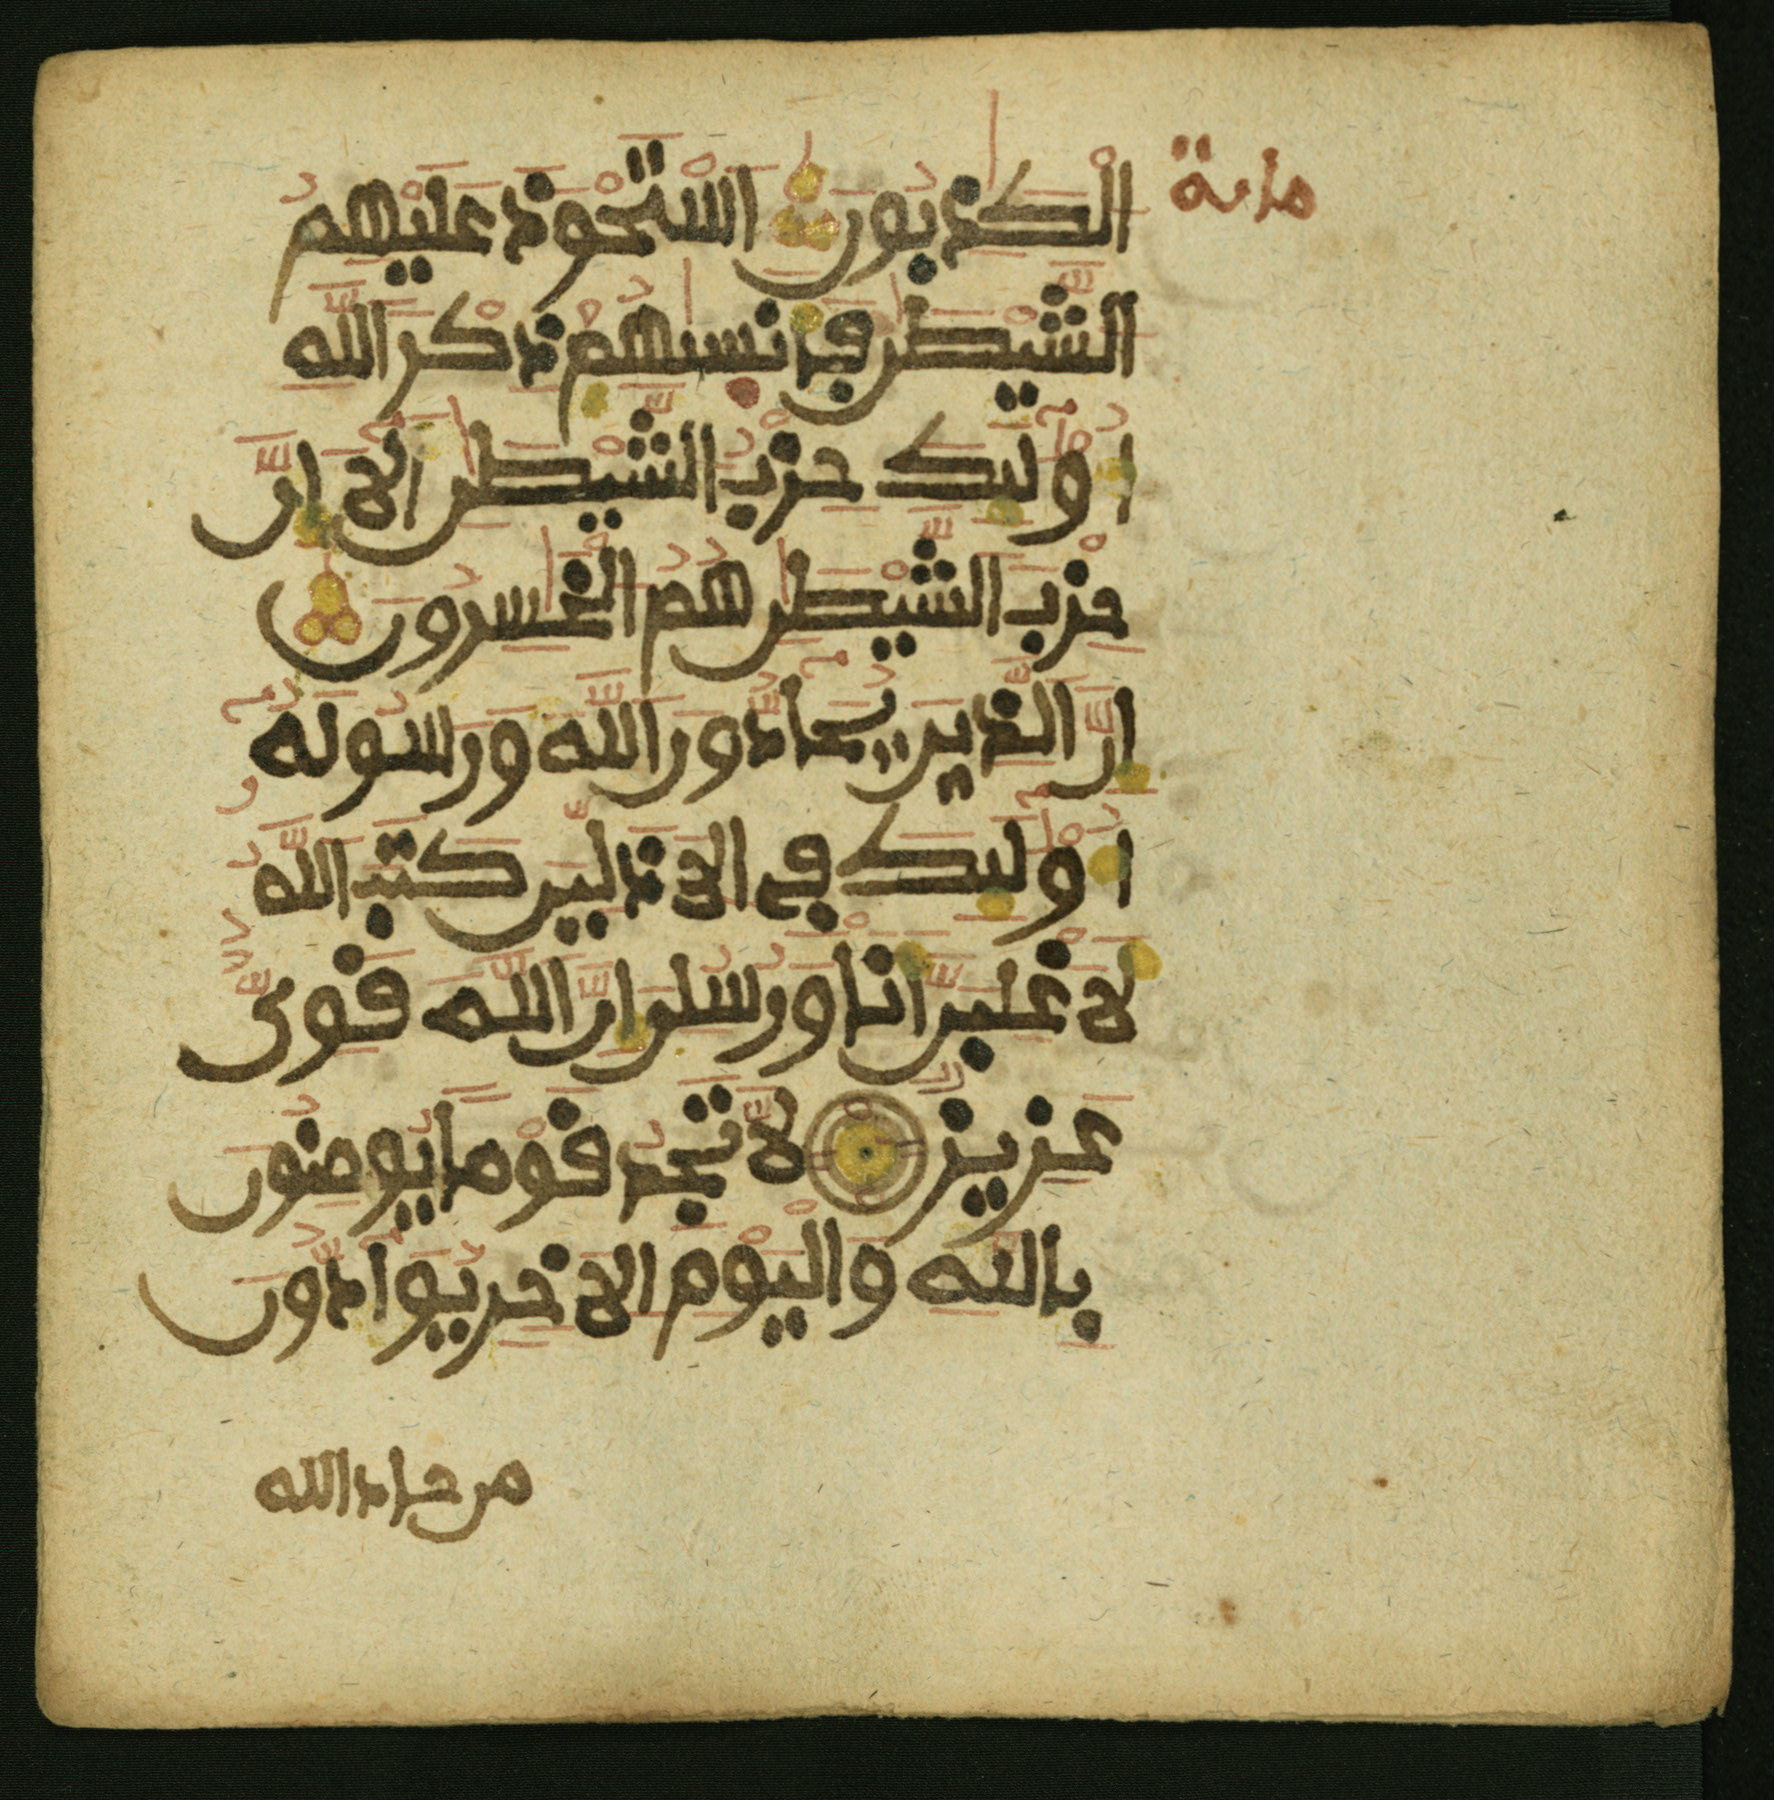 مائة
الكذبون استحوذ عليهم
الشيطن فانسيهم ذكر الله
اوليك حزب الشيطن الا ان
حزب الشيطن هم الخسرون
ان الذين يحادون الله ورسوله
اوليك في الاذلين كتب الله
لاغلبن انا ورسلي ان الله قوى
عزيز لا تجد قوما يومنون
بالله واليوم الاخر يوادون
من حاد الله